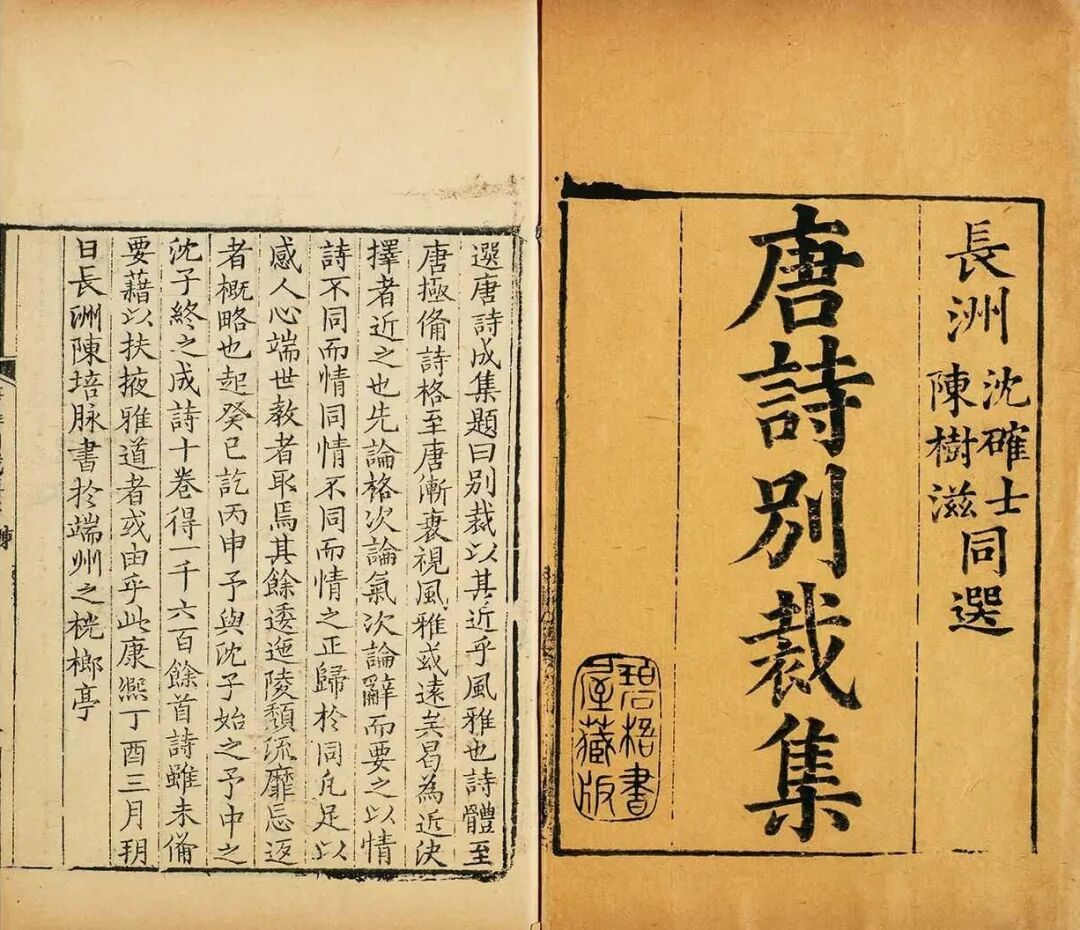 長洲
沈確士
陳樹滋
同選
唐詩別裁集
碧梧書
屋藏版
選唐詩成集題曰別裁以其近乎風雅也詩體至
唐極俻詩格至唐漸衰視風雅或遠矣曷為近決
擇者近之也先論格次論氣次論辭而要之以情
詩不同而情同情不同而情之正歸於同凡足以
感人心端世教者取焉其餘逶迤陵頽流靡忘返
者概略也起癸巳訖丙申予與沈子始之予中之
沈子終之成詩十卷得一千六百餘首詩雖未俻
要藉以扶掖雅道者或由乎此康熈丁酉三月玥
日長洲陳培脉書於端州之桄榔亭